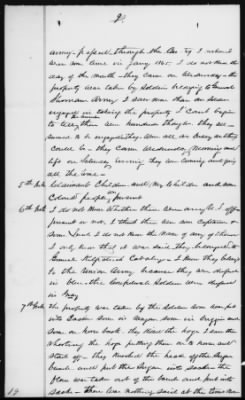 2.
army passed through the Co. I
was come in Jany 1865. I do not know the
day of the month – they came on Wednesday – the
property was taken by soldiers belonging to General
Sherman Army. I saw more than one dozen
engaged in taking the property I can't begin
to tell, there were hundreds though they all
seemed to be engaged, they were all as busy as they
could be – they came Wednesday Morning and
left on Saturday evening they were coming and going
all the time –
5th Int. Claimant Children and my Children and some
Colored people present
6th Int. I do not know whether there were any U. S. officers
present or not, I think there was some Captains &
some Lieut. I do not know the name of any of them
I only know that it was said they belonged to
General Kilpatrick Cavalry – I know they belonged
to the Union Army because they were dressed
in blue, the Confederate Soldiers were dressed
in Gray
7th Int. The property was taken by the soldiers some dumped
into some in wagon some in buggies and
some on horse back, they killed the hogs I saw them
shooting the hogs putting them on a horse and
start off – they knocked the head off the sugar
barrel and put the sugar into sacks – the
flour was taken out of the barrel and put into
sacks – there was nothing said at the time
19